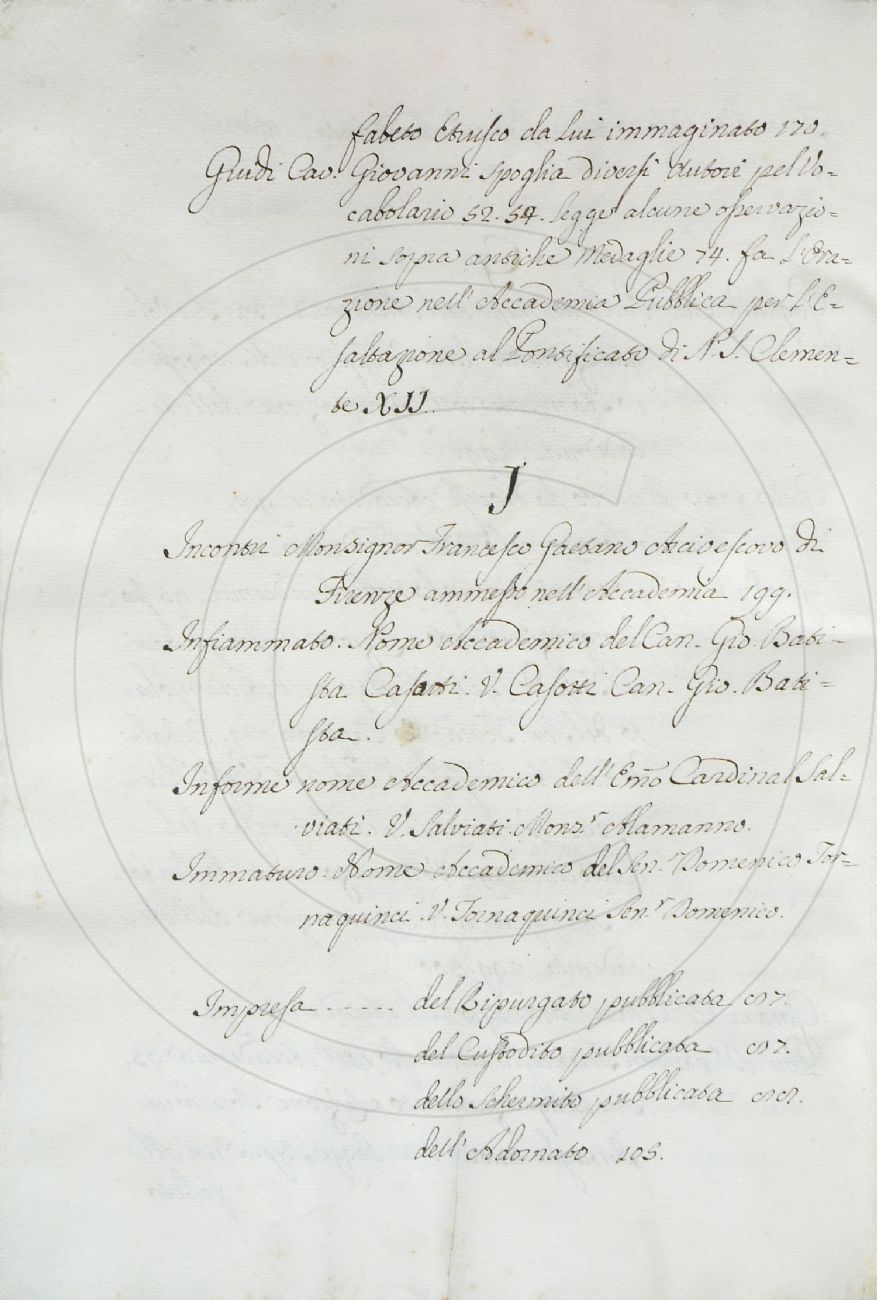 fabeto Etrusco da lui immaginato 170.
Guidi Cav. Giovanni spoglia diversi Autori pel Vo-
cabolario 52. 54. legge alcune osservazio-
ni sopra antiche Medaglie 74. fa l'Ora-
zione nell'Accademia Pubblica per l'E-
saltazione al Pontificato di N. S. Clemen-
te XII.
I
Incontri Monsignor Francesco Gaetano Arcivescovo di
Firenze ammesso nell'Accademia 199.
Infiammato. Nome Accademico del Can. Gio. Bati-
sta Casotti. V. Casotti Can. Gio. Bati=
sta.
Informe nome Accademico dell'Emo Cardinal Sal-
viati. V. Salviati Monsr Alamanno.
Immaturo. Nome Accademico del Senr Domenico Tor-
naquinci. V. Tornaquinci Senr Domenico.
Impresa ..... del Ripurgato pubblicata
del Custodito pubblicata
dello Schermito pubblicata
dell'Adornato 105.